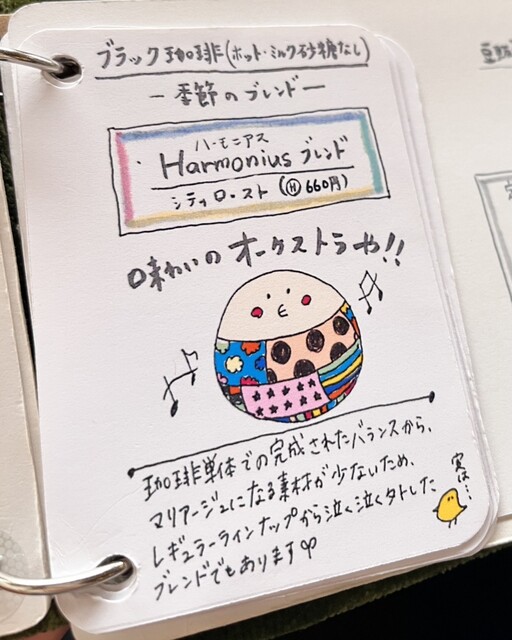 ブラック珈琲(ホット・ミルク砂糖なし)
ー季節のブレンドー
ハーモニアス
Harmonius ブレンド
シティロースト (Ⓗ 660円)
味わいのオーケストラや!!
珈琲単体での完成されたバランスから、
マリアージュになる素材が少ないため、
レギュラーラインナップから泣く泣く外した
ブレンドでもあります♡
実は…